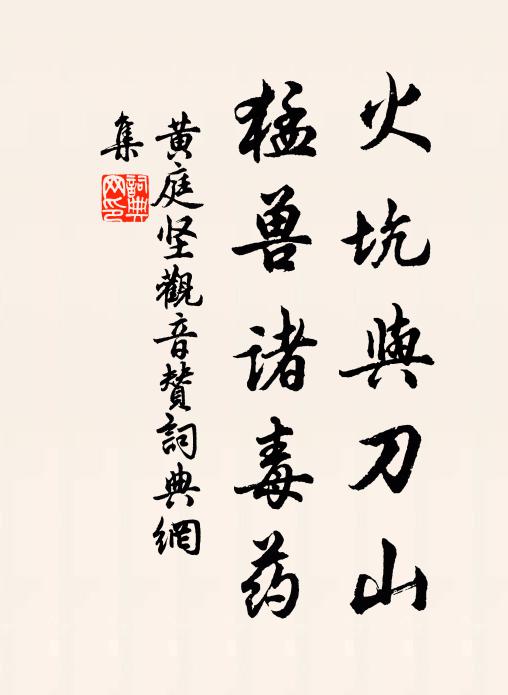 火坑與刀山
猛兽诸毒药
黄庭坚觀音賛詞典網
集
詞典
网印